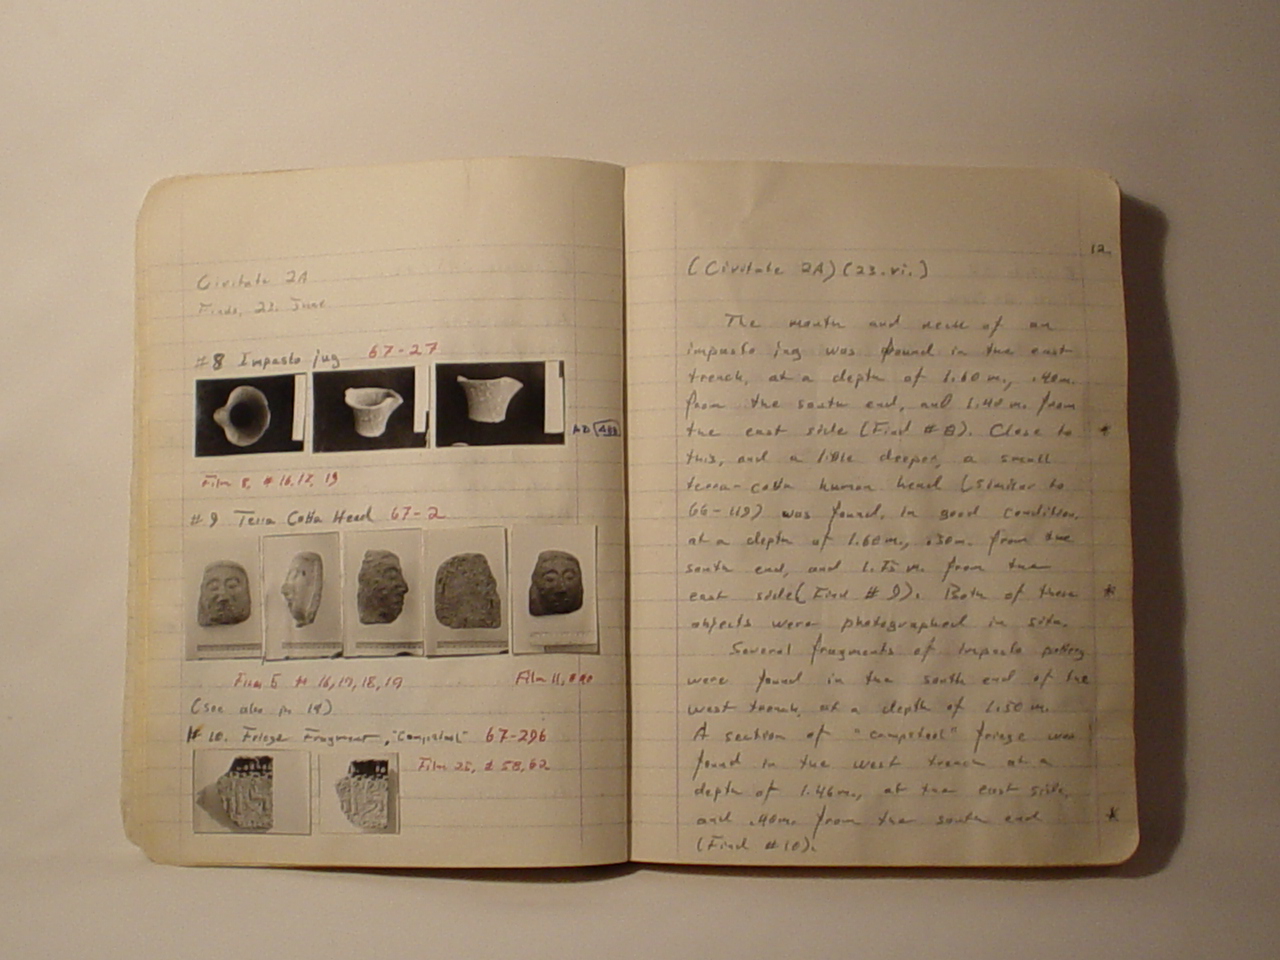 Civitate 2A
Finds, 23. June
#8 Impasto jug 67-27
AD 488
Film 8, # 16, 17, 19
#9 Terra Cotta Head 67-2
Film 5 # 16, 17, 18, 19
Film 11, #
(see also p. 14)
#10. Frieze Fragment, "Campstool" 67-296
Film 25, # 58, 62
12.
(Civitate 2A) (23.vi.)
The mouth and neck of an
impasto jug was found in the east
trench, at a depth of 1.60 m., .40m.
from the south end, and 1.40 m. from
the east side (Find #8). Close to *
this, and a little deeper, a small
terra-cotta human head (similar to
66-119) was found, in good condition,
at a depth of 1.60m., .30m. from the
south end, and 1.75 m. from the
east side (Find #9). Both of these *
objects were photographed in situ.
Several fragments of impasto pottery
were found in the south end of the
west trench, at a depth of 1.50 m.
A section of "campstool" frieze was
found in the west trench at a
depth of 1.46m., at the east side,
and .40m. from the south end *
(Find #10).